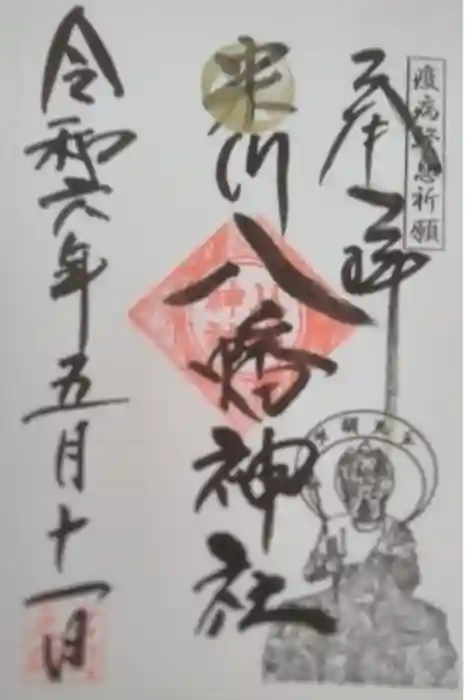 疫病終息祈願
奉拝
米川八幡神社
令和六年五月十一日